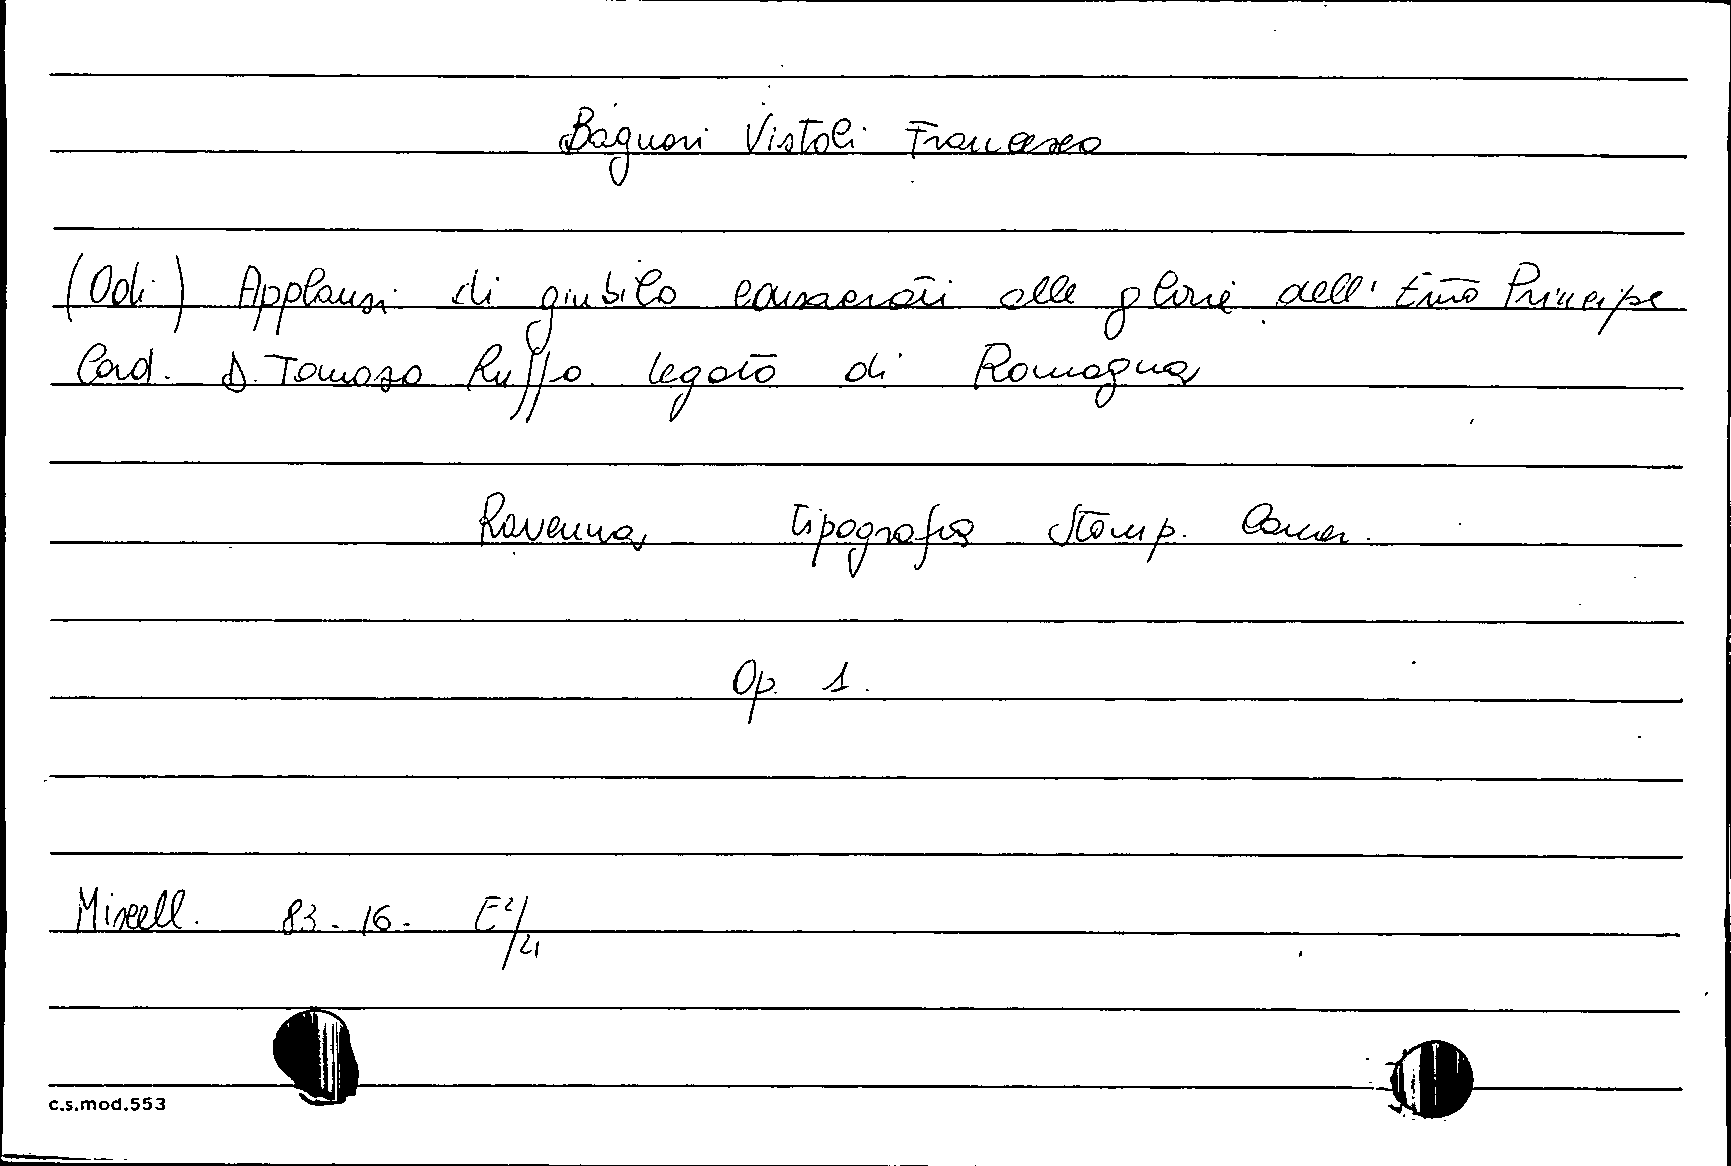 Bagnari Vistoli Francesco
(Odi) Applausi di giubilo consacrati alle glorie dell' Emo Principe
Card. D. Tomaso Ruffo legato di Romagna
Ravenna tipografia Stamp. Camer.
Op. 1.
Miscell. 83-16- E²/21
c.s.mod.553